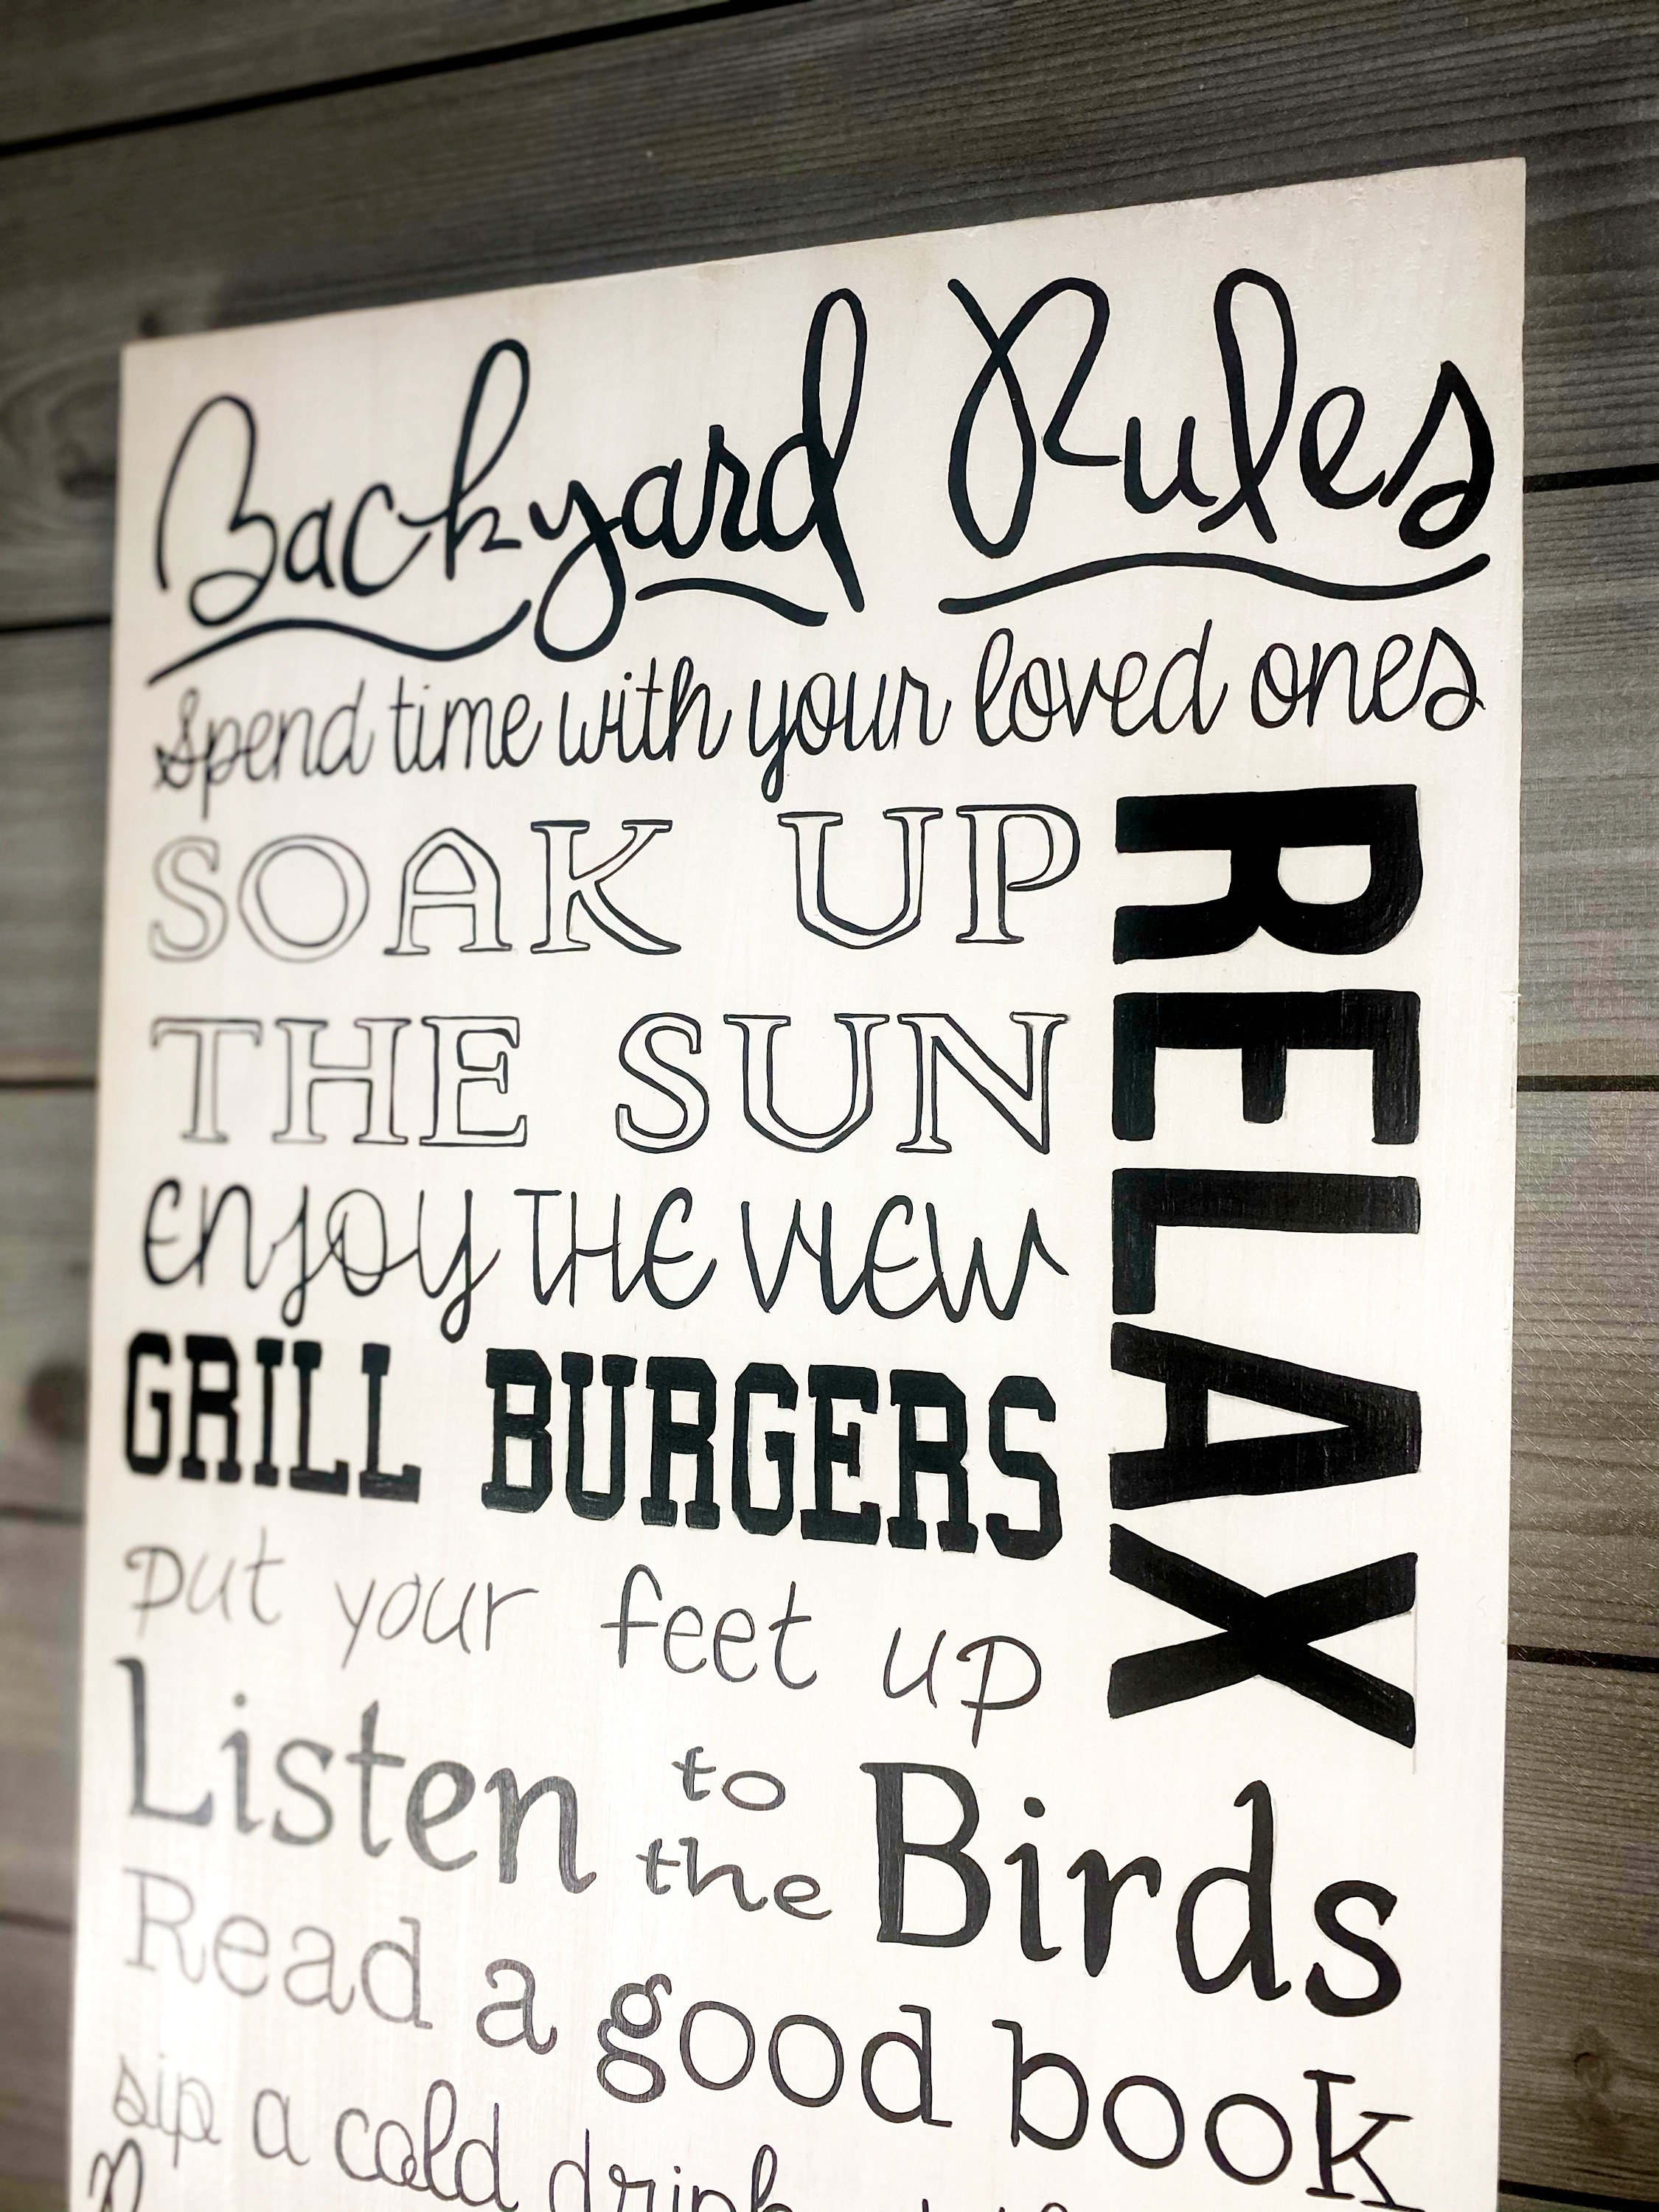 Backyard Rules
Spend time with your loved ones
SOAK UP
THE SUN
RELAX
enjoy THE VIEW
GRILL BURGERS
put your feet up
Listen to the Birds
Read a good book
sip a cold drink